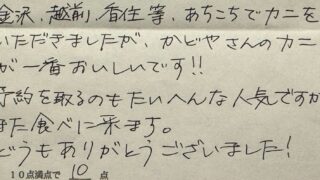 金沢、越前、香住等、あちこちでカニを
いただきましたが、かどやさんのカニ
が一番おいしいです!!
予約を取るのもたいへんな人気ですが
また食べに来ます。
どうもありがとうございました!
10点満点で 10 点